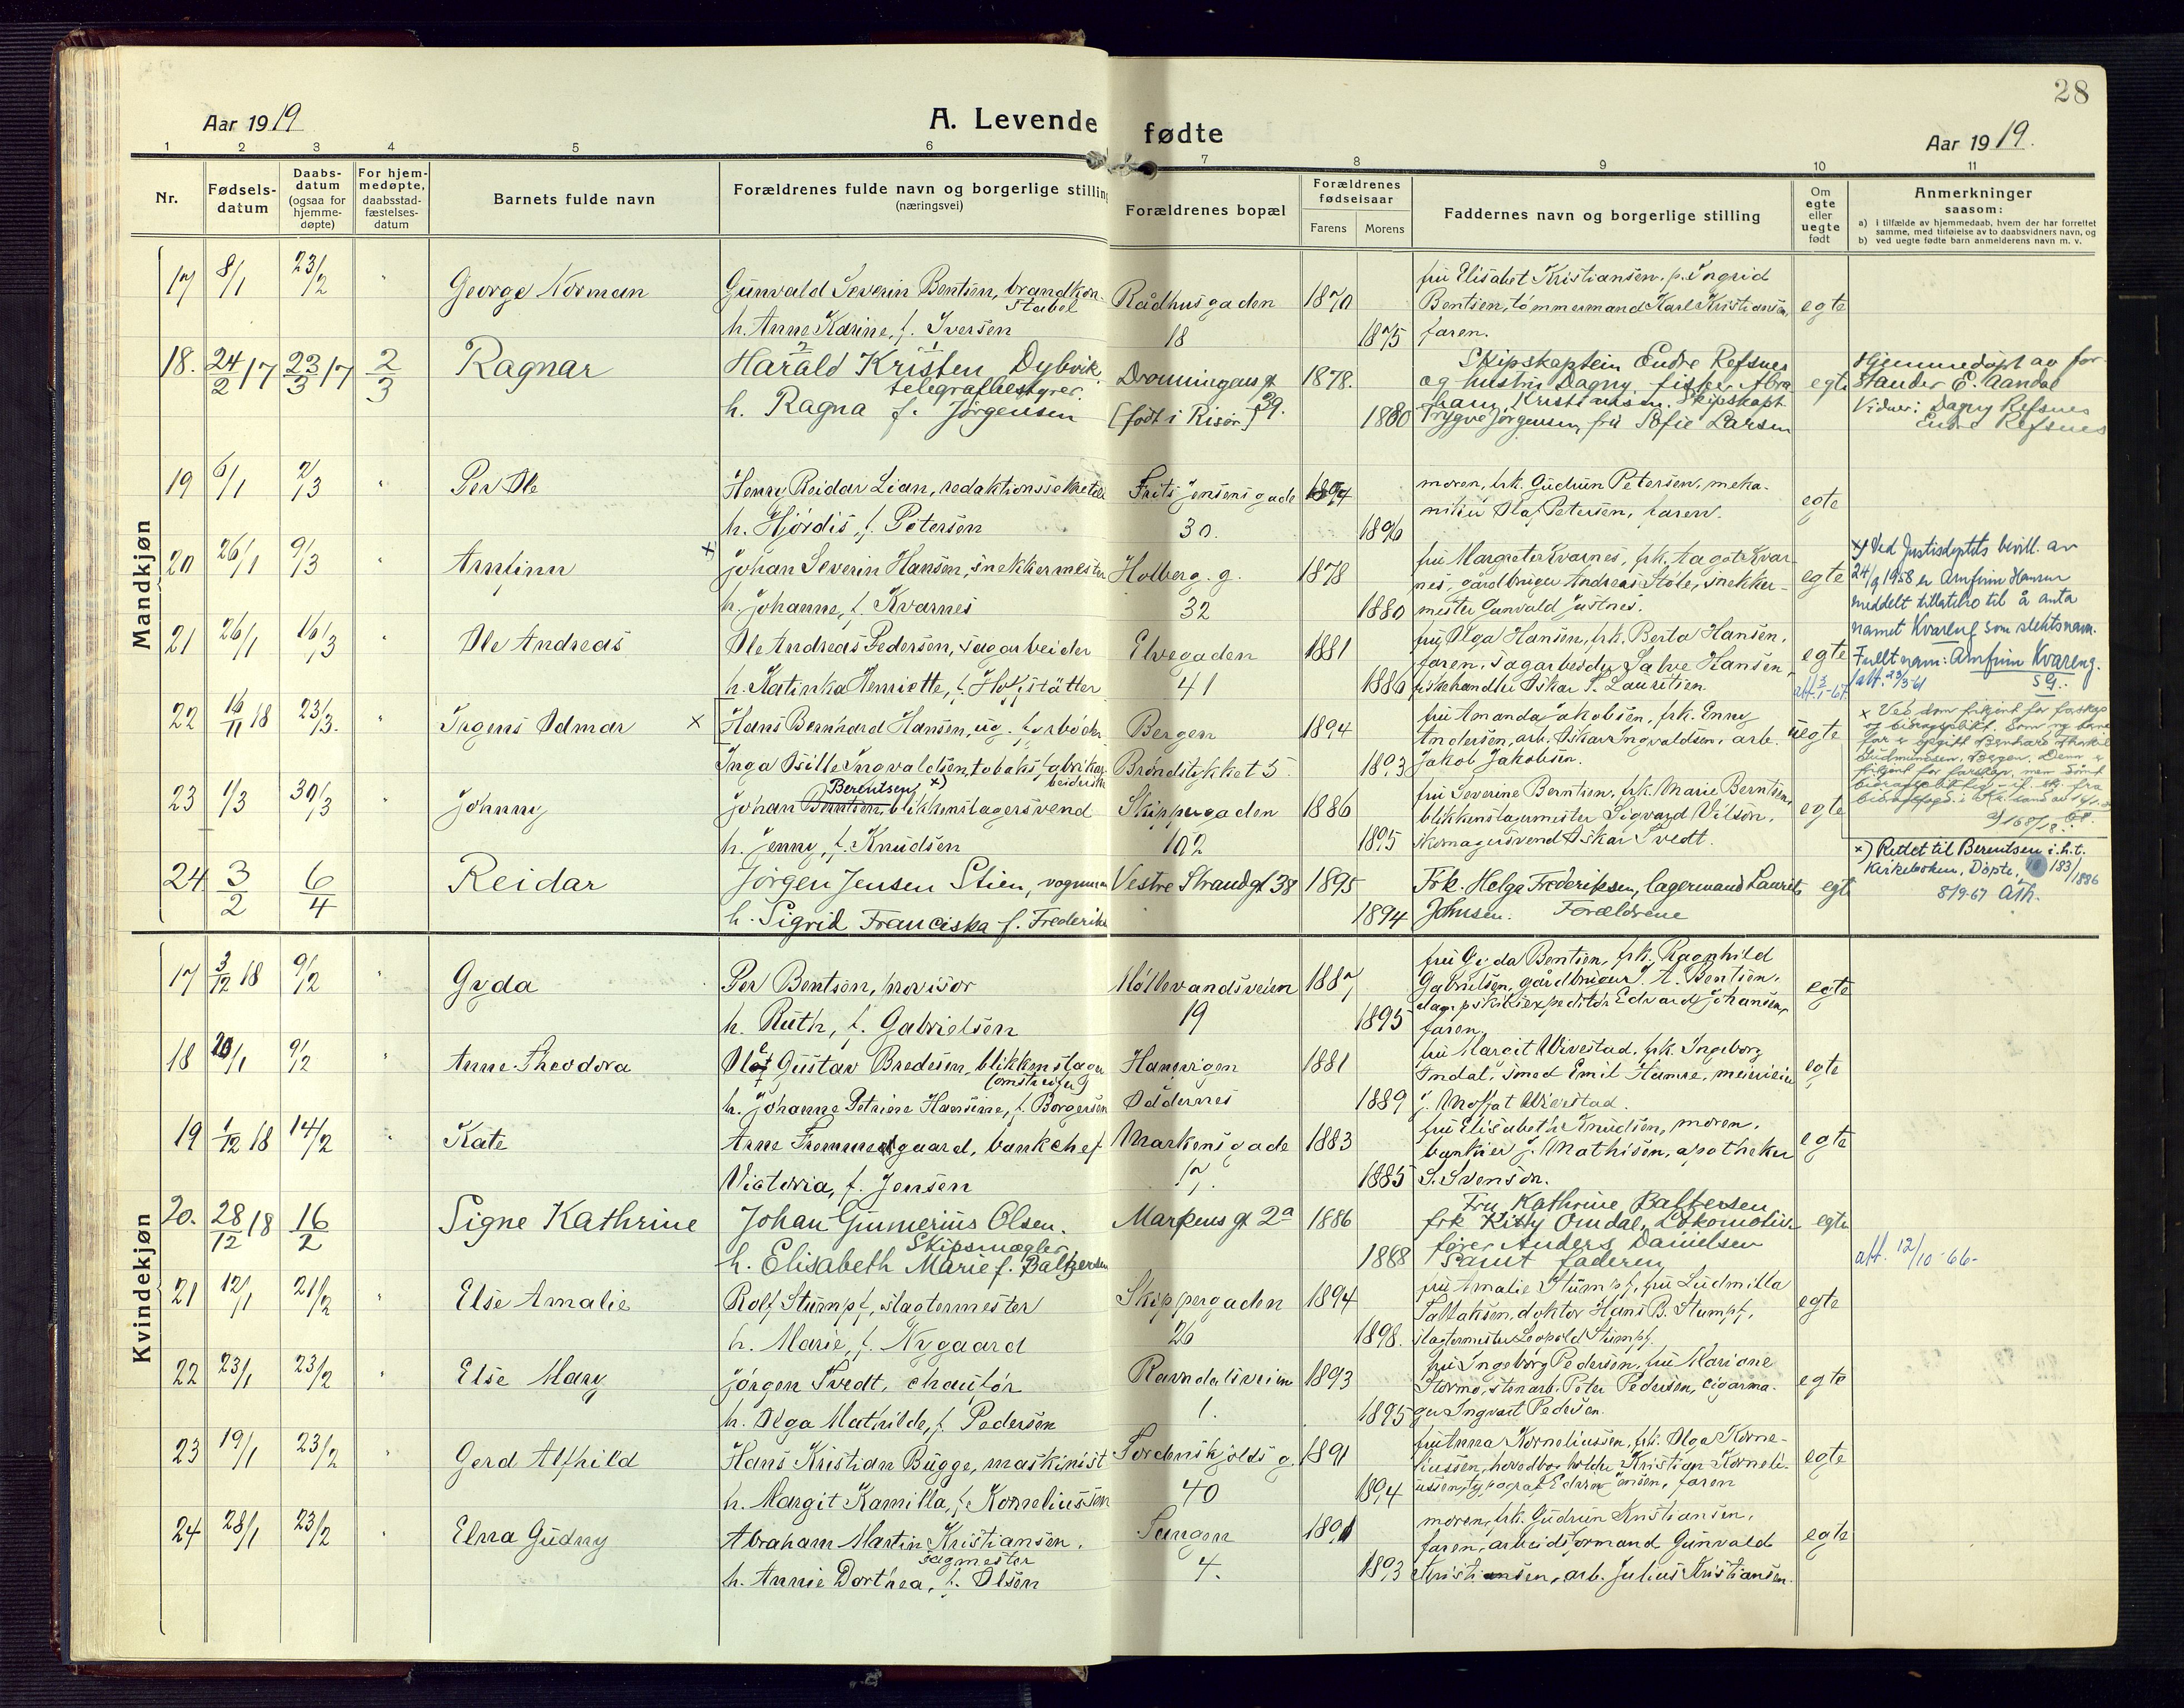 28
Aar 1919
A. Levende fødte
Aar 1919.
1 2 3 4 5 6 7 8 9 10 11
Nr.
Fødsels-
datum
Daabs-
datum
(ogsaa for
hjemme-
døpte)
For hjem-
medøpte,
daabsstad-
fæstelses-
datum
Barnets fulde navn
Forældrenes fulde navn og borgerlige stilling
(næringsvei)
Forældrenes bopæl
Forældrenes
fødselsaar
Farens Morens
Faddernes navn og borgerlige stilling
Om
egte
eller
uegte
født
Anmerkninger
saasom:
a) i tilfælde av hjemmedaab, hvem der har forrettet
samme, med tilføielse av to daabsvidners navn, og
b) ved uegte fødte barn anmelderens navn m. v.
Mandkjøn
17 8/1 23/2 " George Norman
Gunvald Severin Bentsen, brandkon-
stabel
h. Anne Karine, f. Iversen
Raadhusgaden
18
1870
1875
fru Elisabet Kristiansen, f. Ingrid
Bentsen, tømmermand Karl Kristiansen,
faren.
egte
18. 24/2 17 23/3 17 2/3 Ragnar
Harald Kristen Dybvik,
telegrafbestyrer.
h. Ragna f. Jørgensen
Dronningens gt
39.
[født i Risør]
1878.
1880
Skipskaptein Endre Refsnes
og hustru Dagny, fisker Abra
ham Kristiansen, Skipskapt
Trygve Jørgensen, fru Sofie Larsen
egte
Hjemmedøpt av for-
stander E. Aandal
Vidner: Dagny Refsnes
Endre Refsnes
19 6/1 2/3 " Per Ole
Henry Reidar Lian, redaktionssekretær
h. Hjördis, f. Petersen
Frits Jensens gade
30.
1894
1896
moren, frk. Gudrun Petersen, meka-
niker Olaf Petersen, faren.
egte
20 26/1 9/3 " Arnfinn
x
Johan Severin Hansen, snekkermester
h. Johanne, f. Kvarnes
Holberg. g.
32
1878
1880
fru Margrete Kvarnes, frk. Aagot Kvar
nes, gårdbruger Andreas Støle, snekker-
mester Gunvald Justnes.
egte
x) Ved Justisdeptets bevill. av
24/9 1958 er Arnfinn Hansen
meddelt tillatelse til å anta
namnet Kvareng som slektsnavn.
Fullt navn: Arnfinn Kvareng.
21 26/1 16/3 " Ole Andreas
Ole Andreas Pedersen, sagarbeider
h. Katinka Henriette, f. Hoffstätter
Elvegaden
41
1881
1886
fru Olga Hansen, frk. Berta Hansen,
faren, sagarbeider Salve Hansen,
fiskehandler Oskar S. Lauritsen
egte
22 16/11 18 23/3. " Irgens Odmar x
Hans Bernhard Hansen, ug. fyrbøder
Inga Otille Ingvaldsen, tobaksfabrikar-
beiderske
Bergen
Brøndstykket 5
1894
1893
fru Amanda Jakobsen, frk. Enny
Andersen, arb. Oskar Ingvaldsen, arb.
Jakob Jakobsen.
uegte
23 1/3 30/3 Johnny
Berentsen x)
Johan Berntsen, blikkenslagersvend
h. Jenny, f. Knudsen
Skippergaden
102
1886
1895
fru Severine Berntsen, frk. Marie Berntsen,
blikkenslagermester Sigvard Vilson,
skomagersvend Oskar Tvedt.
egte
x) Rettet til Berentsen i.h.t.
Kirkeboken, Døpte, 183/1886
8/9-67 Ath.
24 3/2 6/4 Reidar
Jørgen Jensen Stien, vognmann
h. Sigrid Franciska f. Frederiks
Vestre Strandgt 38
1895
1894
Frk. Helga Frederiksen, lagermand Laurits
Johnsen. Forældrene
egte
Kvindekjøn
17 3/12 18 9/2 " Gyda
Per Bentsen, provisor
h. Ruth, f. Gabrielsen
Møllevandsveien
19
1887
1895
fru Gyda Bentsen, frk. Ragnhild
Gabrielsen, gårdbruger T. A. Bentsen,
dampskibsexpeditør Edvard Johansen,
faren.
egte
18 20/1 9/2 " Anne Theodora
Olaf Gustav Bredesen, blikkenslager
h. Johanne Petrine Hansine, f. Borgersen
Hanevigen
Oddernes
1881
1889
fru Margit Wivestad, frk. Ingeborg
Indal, smed Emil Hamre, meieribest.
egte
19 1/12 18 14/2 " Kate
Arne Fremmegaard, bankchef
Victoria, f. Jensen
Markens gade
17.
1883
1885
fru Elisabeth Knudsen, moren,
bankier J. Mathisen, apotheker
S. Svenson.
egte
20. 28/12 18 16/2 Signe Kathrine
Johan Gunnerius Olsen.
Skipsmægler,
h. Elisabeth Marie f. Baltzersen
Markens gt 2a
1886
1888
Fru Kathrine Baltzersen
frk Kitty Omdal, Lokomotiv
fører Anders Danielsen
samt faderen
egte
att. 12/10-66-
21 12/1 21/2 " Else Amalie
Rolf Stumpf, slagtermester
h. Marie, f. Nygaard
Skippergaden
26
1894
1898.
fru Amalie Stumpf, fru Ludmilla
Tallaksen, doktor Hans B. Stumpf,
slagtermester Leopold Stumpf
egte
22 23/1 23/2 " Else Mary
Jørgen Tvedt, chauför
h. Olga Mathilde, f. Pedersen
Ravndalsveien
1.
1893
1895
fru Ingeborg Pedersen, fru Mariane
Stormo, stenarb. Peter Pedersen, cigarma-
ger Ingvart Pedersen.
egte
23 19/1 23/2 " Gerd Alfhild
Hans Kristian Bugge, maskinist
h. Margit Kamilla, f. Korneliussen
Tordenskjolds g.
40
1891
1894
fru Anna Korneliussen, frk. Olga Korne-
liussen, hovedbokholder Kristian Korneli-
ussen, typograf Edvin Jensen, faren
egte
24 28/1 23/2 " Elna Gudny
Abraham Martin Kristiansen,
sagmester
h. Annie Dorthea, f. Olsen
Tangen
4.
1891
1893
moren, frk. Gudrun Kristiansen,
faren, arbeidsformand Gunvald
Kristiansen, arb. Julius Kristiansen.
egte